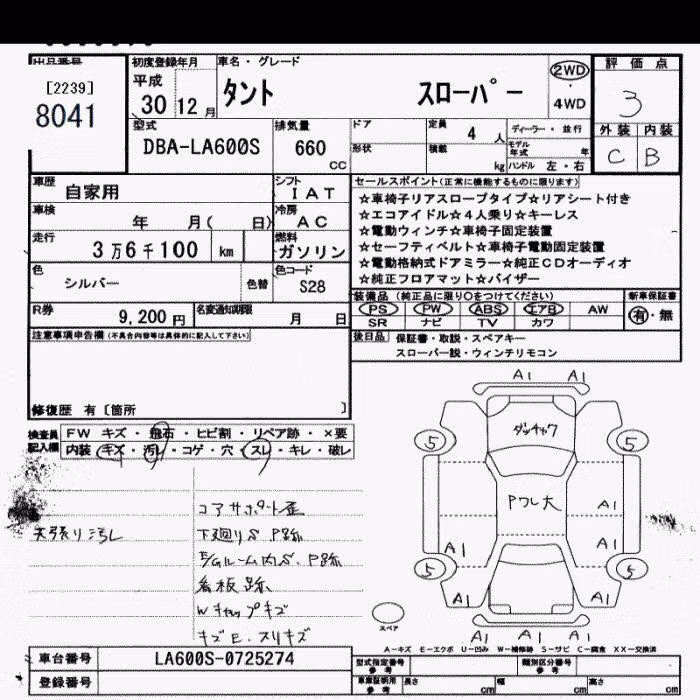 出品番号
[2239]
8041
初度登録年月
平成
30 12 月
車名・グレード
タント スローパー
2WD
・
4WD
評価点
3
外装 内装
C B
型式
DBA-LA600S
排気量
660
CC
ドア
形状
定員
4 人
積載
kg
ディーラー・並行
モデル年式 年
ハンドル 左・右
車歴
自家用
シフト
IAT
車検
年 月( 日)
冷房
AC
走行
3万6千100 km
燃料
ガソリン
色
シルバー
色替
色コード
S28
R券
9,200 円
名変通知期限
月 日
セールスポイント(正常に機能するものに限ります)
☆車椅子リアスロープタイプ☆リアシート付き
☆エコアイドル☆4人乗り☆キーレス
☆電動ウィンチ☆車椅子固定装置
☆セーフティベルト☆車椅子電動固定装置
☆電動格納式ドアミラー☆純正CDオーディオ
☆純正フロアマット☆バイザー
装備品(純正品に限り○をつけてください)
新車保証書
PS PW ABS エアB AW
有・無
SR ナビ TV カワ
後日品
保証書・取説・スペアキー
スローパー説・ウィンチリモコン
注意事項申告欄(不具合内容等は具体的に記入して下さい)
修復歴 有〔箇所 〕
検査員
記入欄
FW キズ・飛石・ヒビ割・リペア跡・×要
内装 キズ・汚レ・コゲ・穴・スレ・キレ・破レ
天張り汚レ
コアサポート歪
下廻りS P跡
E/Gルーム内S、P跡
看板跡
Wキャップキズ
キズE、スリキズ
A1 A1
ダッチャク
5 5
Pワレ大
A1
A1 A1
5 5
A1 A1
A1 A1 A1
スペア
A−キズ E−エクボ U−凹み W−補修跡 S−サビ C−腐食 XX−交換済
車台番号
LA600S-0725274
登録番号
型式指定番号
参考
類別区分番号
参考
車庫証明用
参考
長さ cm
幅 cm
高さ cm